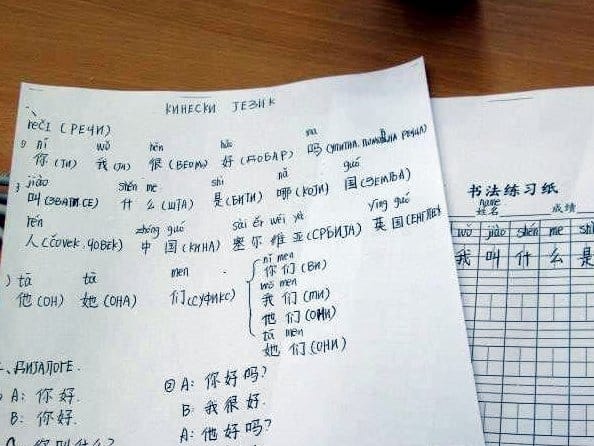 КИНЕСКИ ЈЕЗИК
REČI (РЕЧИ)
nǐ wǒ hěn hǎo ma
你(ТИ) 我(ЈА) 很(ВЕОМА) 好(ДОБАР) 吗(УПИТНА ПОМОЋНА РЕЧЦА)
jiào shén me shì nǎ guó
叫(ЗВАТИ СЕ) 什么(ШТА) 是(БИТИ) 哪(КОЈИ) 国(ЗЕМЉА)
rén zhōng guó sài ěr wéi yà yīng guó
人(ČOVEK, ЧОВЕК) 中国(КИНА) 塞尔维亚(СРБИЈА) 英国
tā tā men
他(ОН) 她(ОНА) 们(СУФИКС)
nǐ men
你们(ВИ)
wǒ men
我们(МИ)
他们(ОНИ)
tā men
她们(ОНИ)
ДИЈАЛОГЕ
A: 你好.
B: 你好.
② A: 你好吗?
B: 我很好.
A: 他好吗?
书法练习纸
name
姓名 成绩
wǒ jiào shén me shì
我叫什么是